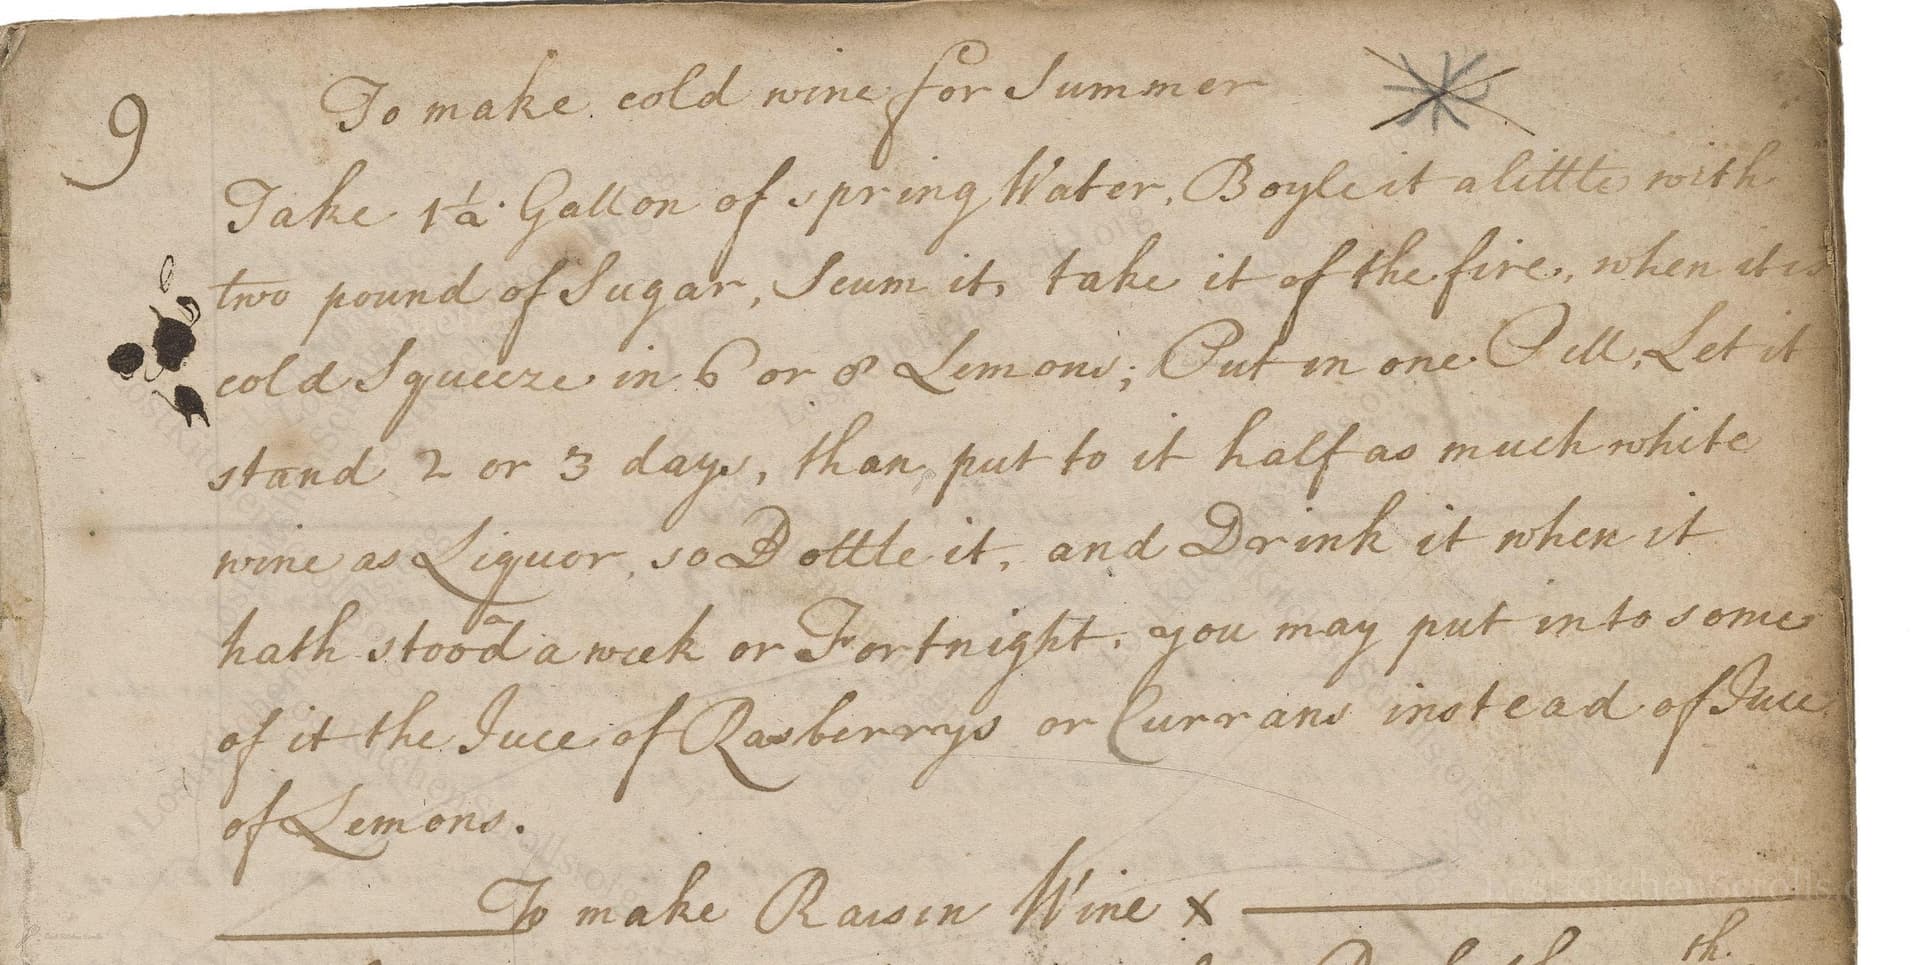 9
To make cold wine for Summer
Take 1½ Gallon of spring Water, Boyle it a little with
two pound of Sugar, Scum it, take it of the fire, when it is
cold Squeeze in 6 or 8 Lemons; Put in one Pill, Let it
stand 2 or 3 days, than put to it half as much white
wine as Liquor, so Bottle it, and Drink it when it
hath stood a week or Fortnight. you may put into some
of it the Juce of Rasberrys or Currans instead of Juce
of Lemons.
To make Raisin Wine x
th